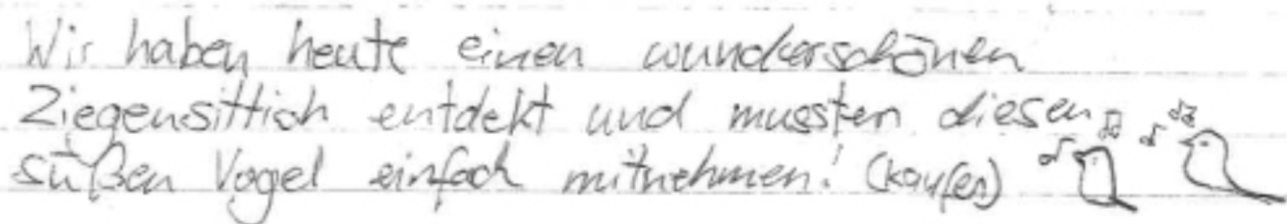 Wir haben heute einen wunderschönen
Ziegensittich entdekt und mussten diesen
süßen Vogel einfach mitnehmen! (kaufen)